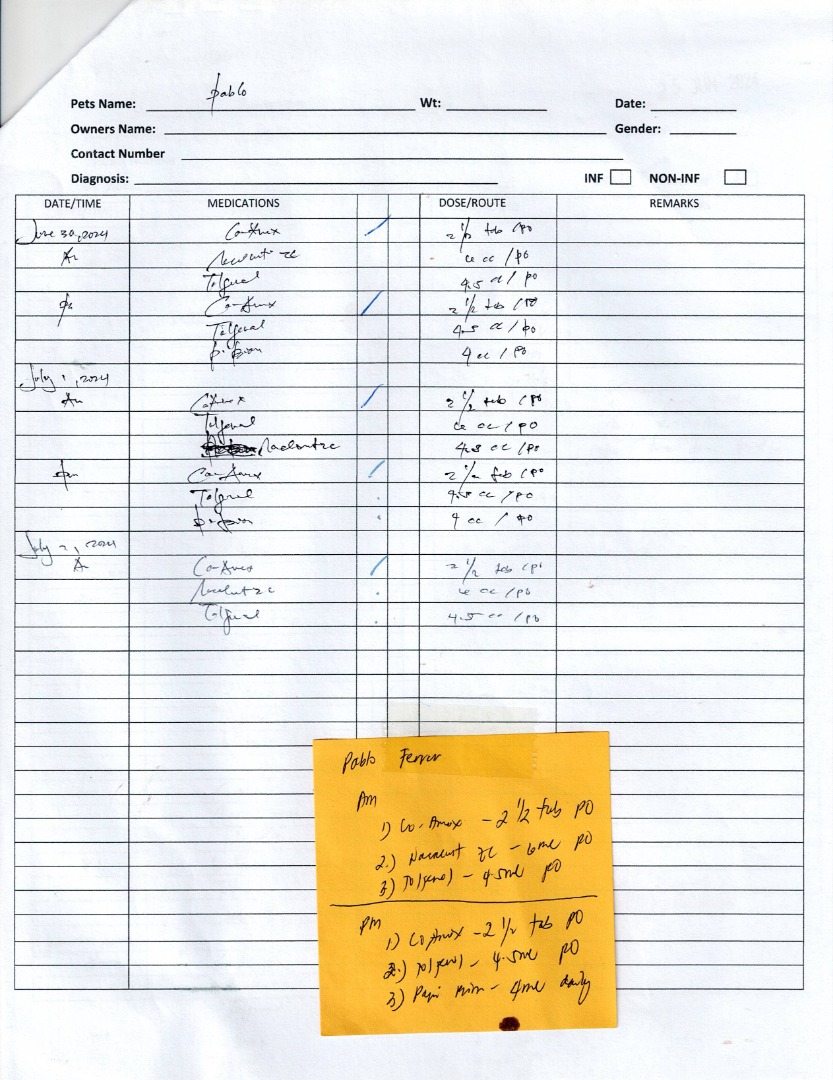 Pets Name: Pablo Wt: Date:
Owners Name: Gender:
Contact Number
Diagnosis: INF NON-INF
DATE/TIME MEDICATIONS DOSE/ROUTE REMARKS
June 30, 2024 Co-Amox 2 1/2 tab / po
Am 6 cc / po
Tolfenol 4.5 cc / po
pm Co-Amox 2 1/2 tab / po
Tolfenol 4.5 cc / po
4 cc / po
July 1, 2024
Am Co-Amox 2 1/2 tab / po
Tolfenol 6 cc / po
4.5 cc / po
pm Co-Amox 2 1/2 tab / po
Tolfenol 4.5 cc / po
4 cc / po
July 2, 2024
Am Co-Amox 2 1/2 tab / po
6 cc / po
Tolfenol 4.5 cc / po
Pablo Ferrer
Am
1) Co-Amox - 2 1/2 tab PO
2.) - 6ml PO
3) Tolfenol - 4.5ml PO
PM
1) Co Amox - 2 1/2 tab PO
2.) Tolfenol - 4.5ml PO
3) - 4ml daily